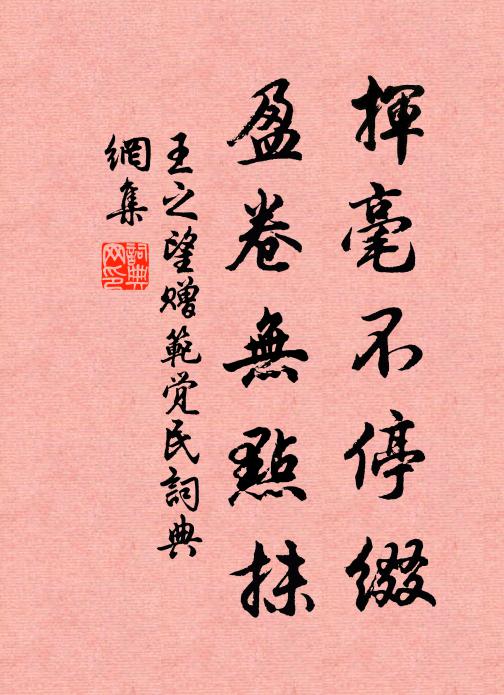 揮毫不停綴
盈卷無點抹
王之望贈範觉民詞典
網集
詞典
网印